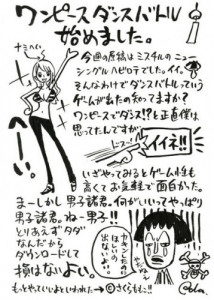 ワンピースダンスバトル
始めました。
ナミへい。
へーい。
今回の原稿はミスチルのニュー
シングルハピロテでした。イイ。
そんなわけでダンスバトルっていう
ゲームが出たの知ってますか?
ワンピースでダンス!?と正直僕は
思ってたんですが
ドスーン
イイネ!!
いざやってみるとゲーム性も
高くてお気軽で面白かった。
まーしかし男子諸君。何がいいってやっぱり
男子諸君。ねー男子!!
とりあえずタダ
なんだから
ダウンロードして
損はないよい。
もっとやっていいよといわれた→©さくらももこ!!